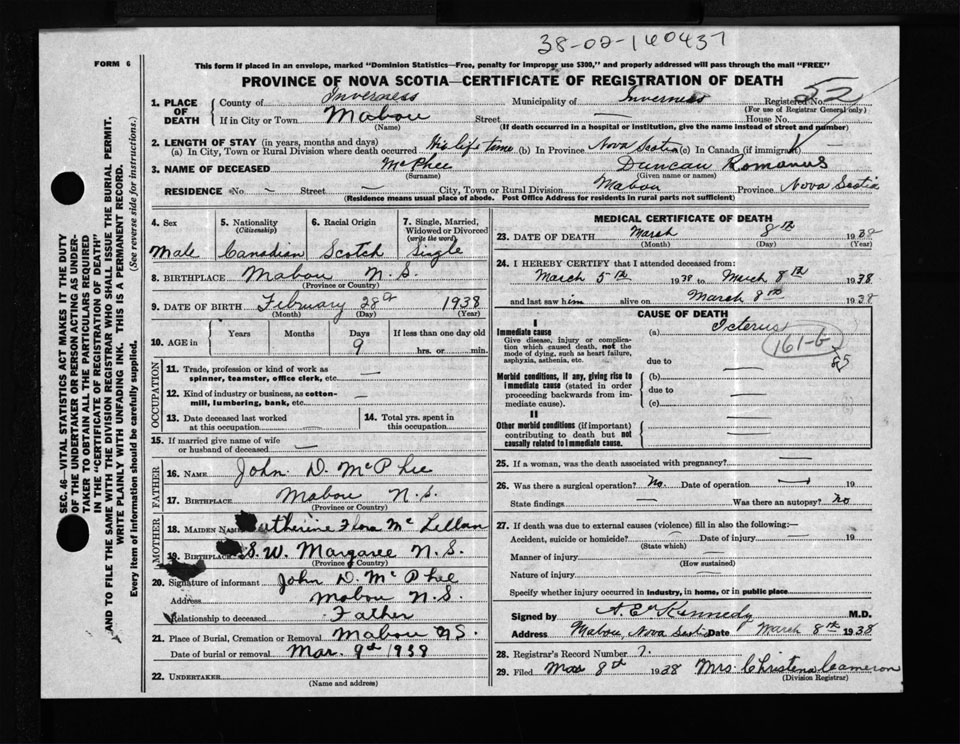 38-02-160437
FORM 6
This form if placed in an envelope, marked "Dominion Statistics—Free, penalty for improper use $300," and properly addressed will pass through the mail "FREE"
PROVINCE OF NOVA SCOTIA—CERTIFICATE OF REGISTRATION OF DEATH
1. PLACE OF DEATH
County of Inverness Municipality of Inverness Registered No. 52
(For use of Registrar General only)
If in City or Town Mabou Street — House No.
(Name) (If death occurred in a hospital or institution, give the name instead of street and number)
2. LENGTH OF STAY (in years, months and days)
(a) In City, Town or Rural Division where death occurred His life time (b) In Province Nova Scotia (c) In Canada (if immigrant)
3. NAME OF DECEASED McPhee Duncan Romanus
(Surname) (Given name or names)
RESIDENCE No. — Street — City, Town or Rural Division Mabou Province Nova Scotia
(Residence means usual place of abode. Post Office Address for residents in rural parts not sufficient)
4. Sex Male
5. Nationality (Citizenship) Canadian
6. Racial Origin Scotch
7. Single, Married, Widowed or Divorced (write the word) Single
8. BIRTHPLACE Mabou N.S.
(Province or Country)
9. DATE OF BIRTH February 28th 1938
(Month) (Day) (Year)
10. AGE in Years Months Days 9 If less than one day old hrs. or min.
OCCUPATION
11. Trade, profession or kind of work as spinner, teamster, office clerk, etc. —
12. Kind of industry or business, as cotton-mill, lumbering, bank, etc. —
13. Date deceased last worked at this occupation —
14. Total yrs. spent in this occupation
15. If married give name of wife or husband of deceased —
FATHER
16. NAME John D. McPhee
17. BIRTHPLACE Mabou N.S.
(Province or Country)
MOTHER
18. MAIDEN NAME Catherine Flora McLellan
19. BIRTHPLACE S. W. Margaree N.S.
(Province or Country)
20. Signature of informant John D. McPhee
Address Mabou N.S.
Relationship to deceased Father
21. Place of Burial, Cremation or Removal Mabou N.S.
Date of burial or removal Mar. 9th 1938
22. UNDERTAKER
(Name and address)
MEDICAL CERTIFICATE OF DEATH
23. DATE OF DEATH March 8th 1938
(Month) (Day) (Year)
24. I HEREBY CERTIFY that I attended deceased from:
March 5th 1938 to March 8th 1938
and last saw him alive on March 8th 1938
CAUSE OF DEATH
I
Immediate cause
Give disease, injury or complication which caused death, not the mode of dying, such as heart failure, asphyxia, asthenia, etc.
(a) Icterus
161-b
due to
Morbid conditions, if any, giving rise to immediate cause (stated in order proceeding backwards from immediate cause).
(b) —
due to —
(c) —
II
Other morbid conditions (if important) contributing to death but not causally related to immediate cause.
25. If a woman, was the death associated with pregnancy? —
26. Was there a surgical operation? No. Date of operation — 19
State findings — Was there an autopsy? No
27. If death was due to external causes (violence) fill in also the following:—
Accident, suicide or homicide? — Date of injury — 19
(State which)
Manner of injury —
(How sustained)
Nature of injury —
Specify whether injury occurred in industry, in home, or in public place
Signed by A E Kennedy M.D.
Address Mabou, Nova Scotia Date March 8th 1938
28. Registrar's Record Number 7.
29. Filed Mar 8th 1938 Mrs. Christena Cameron
(Division Registrar)
SEC. 46—VITAL STATISTICS ACT MAKES IT THE DUTY
OF THE UNDERTAKER OR PERSON ACTING AS UNDER-
TAKER TO OBTAIN ALL THE PARTICULARS REQUIRED
IN THE "CERTIFICATE OF REGISTRATION OF DEATH"
AND TO FILE THE SAME WITH THE DIVISION REGISTRAR WHO SHALL ISSUE THE BURIAL PERMIT.
WRITE PLAINLY WITH UNFADING INK. THIS IS A PERMANENT RECORD.
Every item of information should be carefully supplied. (See reverse side for instructions.)